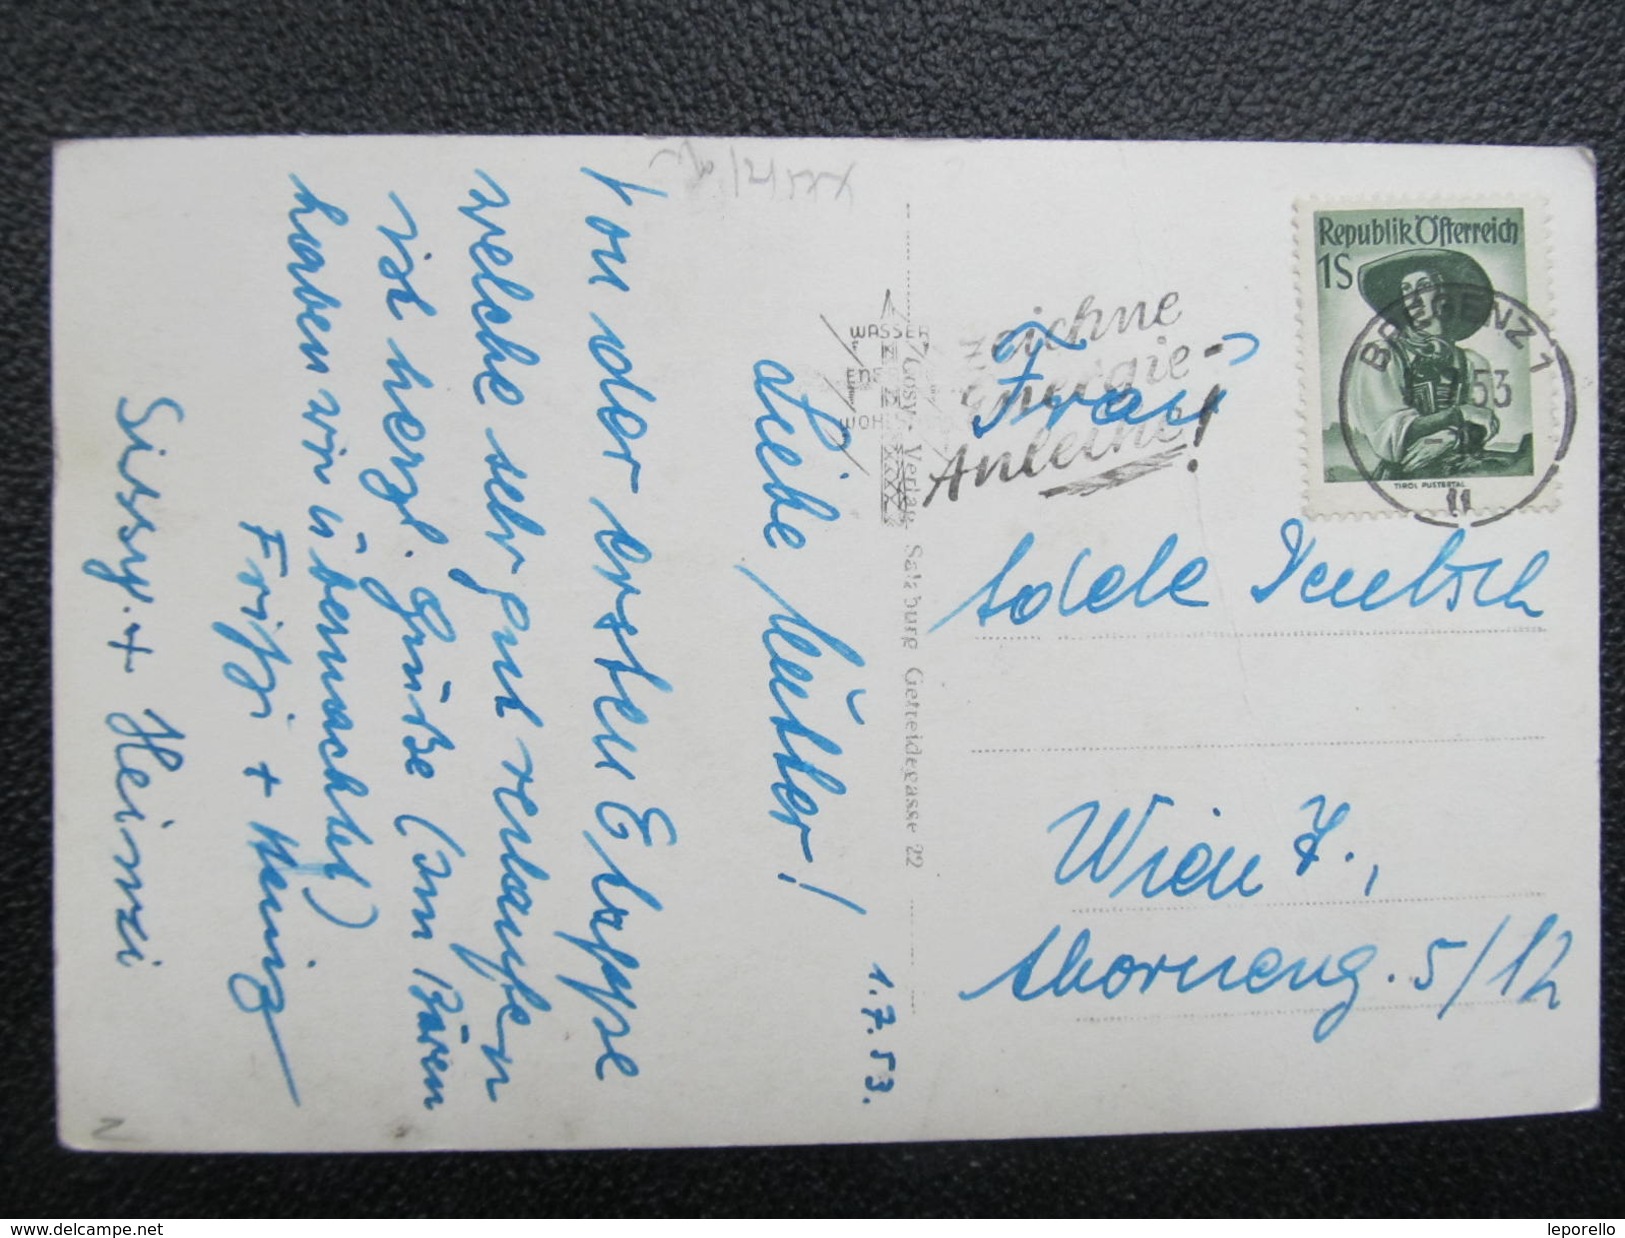 1.7.53.
Liebe Mutter!
Von der ersten Etappe
welche sehr gut verlaufen
ist herzl. Grüße (Im Bären
haben wir übernachtet)
Fritzi + Heinz
Sissy. + Heinzi
Cosy-Verlag Salzburg Getreidegasse 22
WASSER
ENE
WOH
zeichne
Energie-
Anleihe!
Republik Österreich
1S
TIROL PUSTERTAL
BREGENZ 1
53
Frau
Adele Deutsch
Wien 7.,
5/12
delcampe.net
leporello